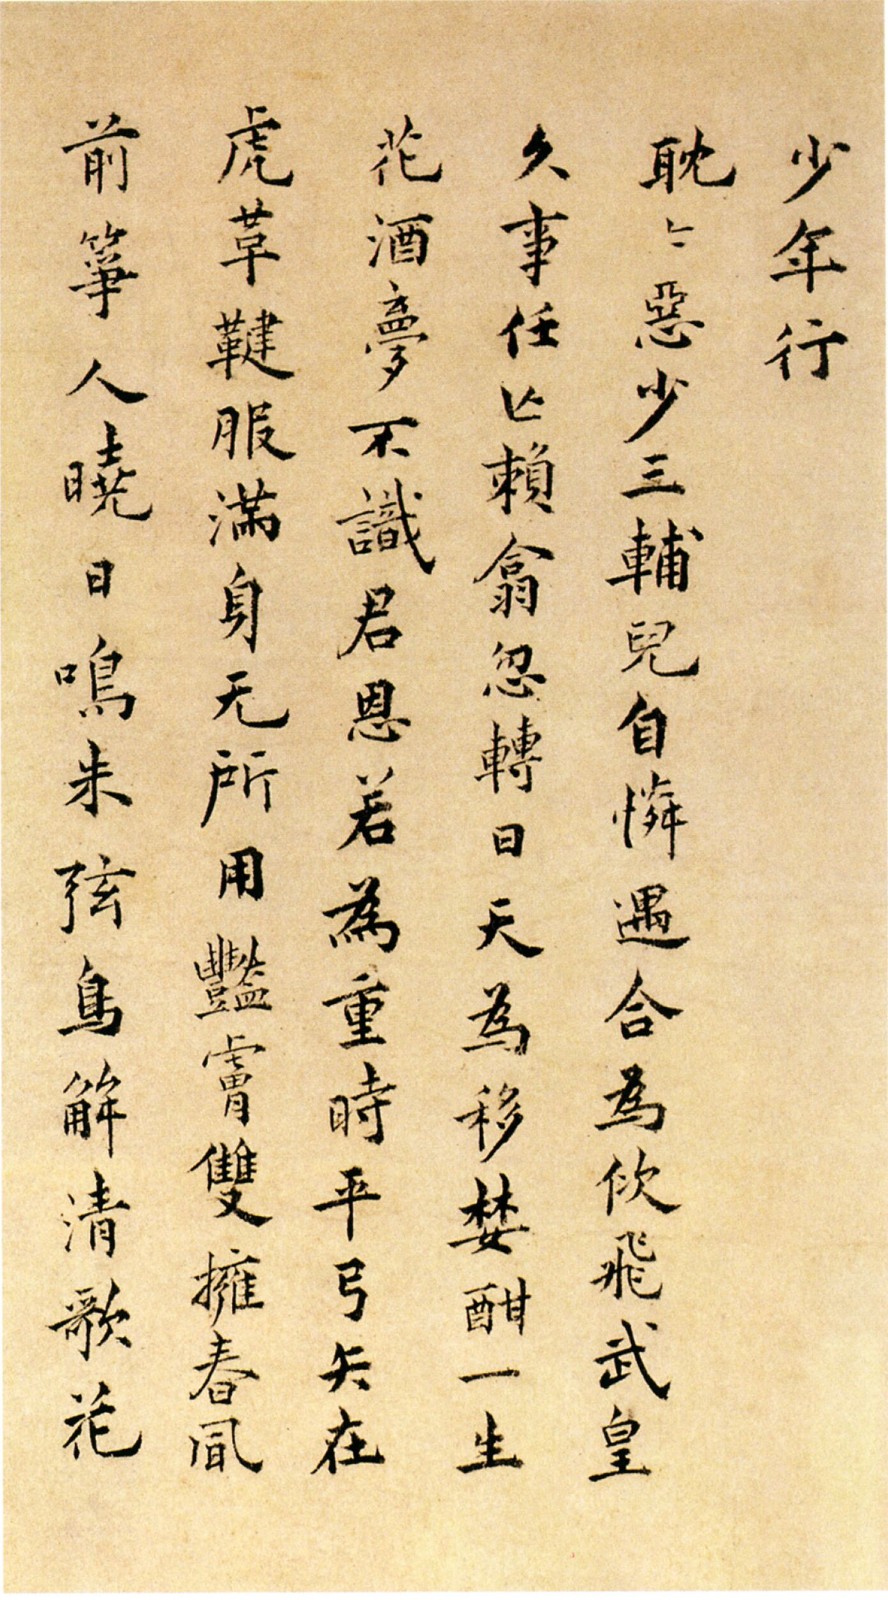 少年行
耽〻惡少三輔兒自憐遇合為佽飛武皇
久事任亾賴翕忽轉日天為移婪酣一生
花酒夢不識君恩若為重時平弓矢在
虎韋鞬服滿身无所用豔膚雙擁春風
前箏人曉日鳴朱弦鳥解清歌花